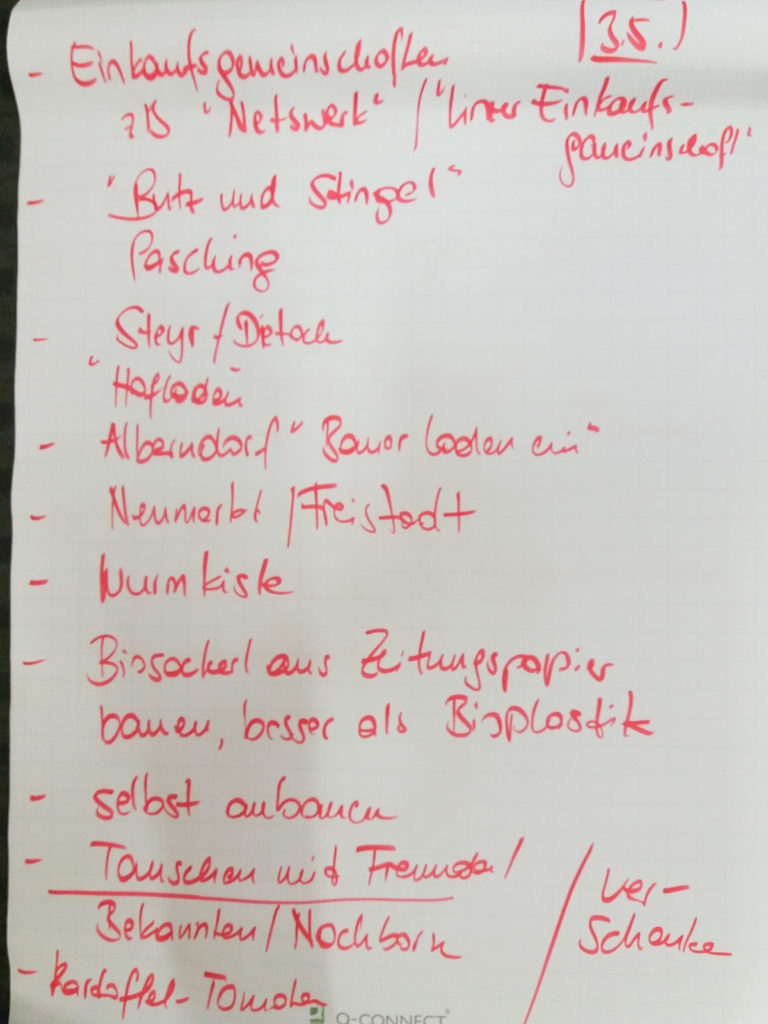 (3.5.)
- Einkaufsgemeinschaften
zB "Netswerk" / "Linzer Einkaufs-
gemeinschaft"
- "Butz und Stingel"
Pasching
- Steyr / Dietach
"Hofladen"
- Alberndorf "Bauer laden ein"
- Neumarkt / Freistadt
- Wurmkiste
- Biosackerl aus Zeitungspapier
bauen, besser als Bioplastik
- selbst anbauen
- Tauschen mit Freunden /
Bekannten / Nachbarn
/ Ver-
schenken
- Kartoffel-Tomaten
Q-CONNECT®